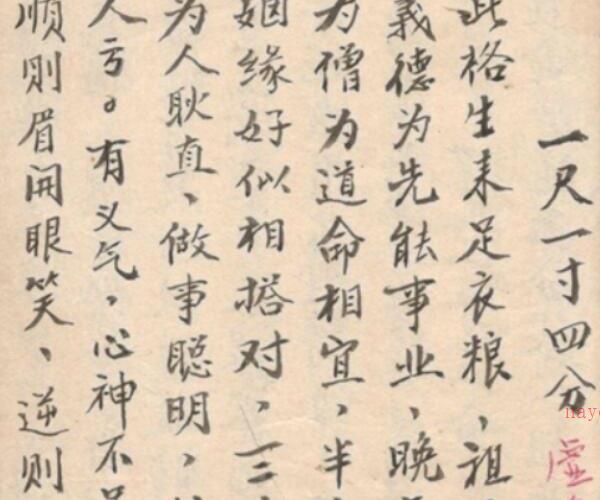 一尺一寸四分虚
此格生来足衣粮、祖
義德为先能事业、晚
为僧为道命相宜、半
姻缘好似相搭对、三
为人耿直、做事聪明、
人亏。有义气、心神不
顺则眉开眼笑、逆则
nayo